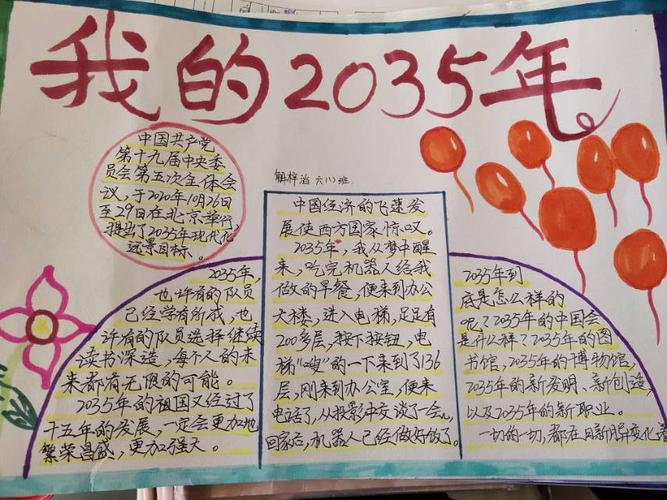 我的2035年
中国共产党
第十九届中央委
员会第五次全体会
议，于2020年10月26日
至29日在北京举行
提出了2035年现代化
远景目标。
解梓涵 六(1)班
中国经济的飞速发
展使西方国家惊叹。
2035年，我从梦中醒
来，吃完机器人给我
做的早餐，便来到办公
大楼，进入电梯，足足有
200多层，按下按钮，电
梯“嗖”的一下来到了136
层，刚来到办公室，便来
电话了，从投影中交谈了一会儿
回家后，机器人已经做好饭了。
2035年，
也许有的队员
已经学有所成，也
许有的队员选择继续
读书深造，每个人的未
来都有无限的可能。
2035年的祖国又经过了
十五年的发展，一定会更加地
繁荣昌盛，更加强大。
2035年到
底是怎么样的
呢？2035年的中国会
是什么样？2035年的图
书馆，2035年的博物馆，
2035年的新发明、新创造，
以及2035年的新职业。
一切的一切，都在日新月异变化着